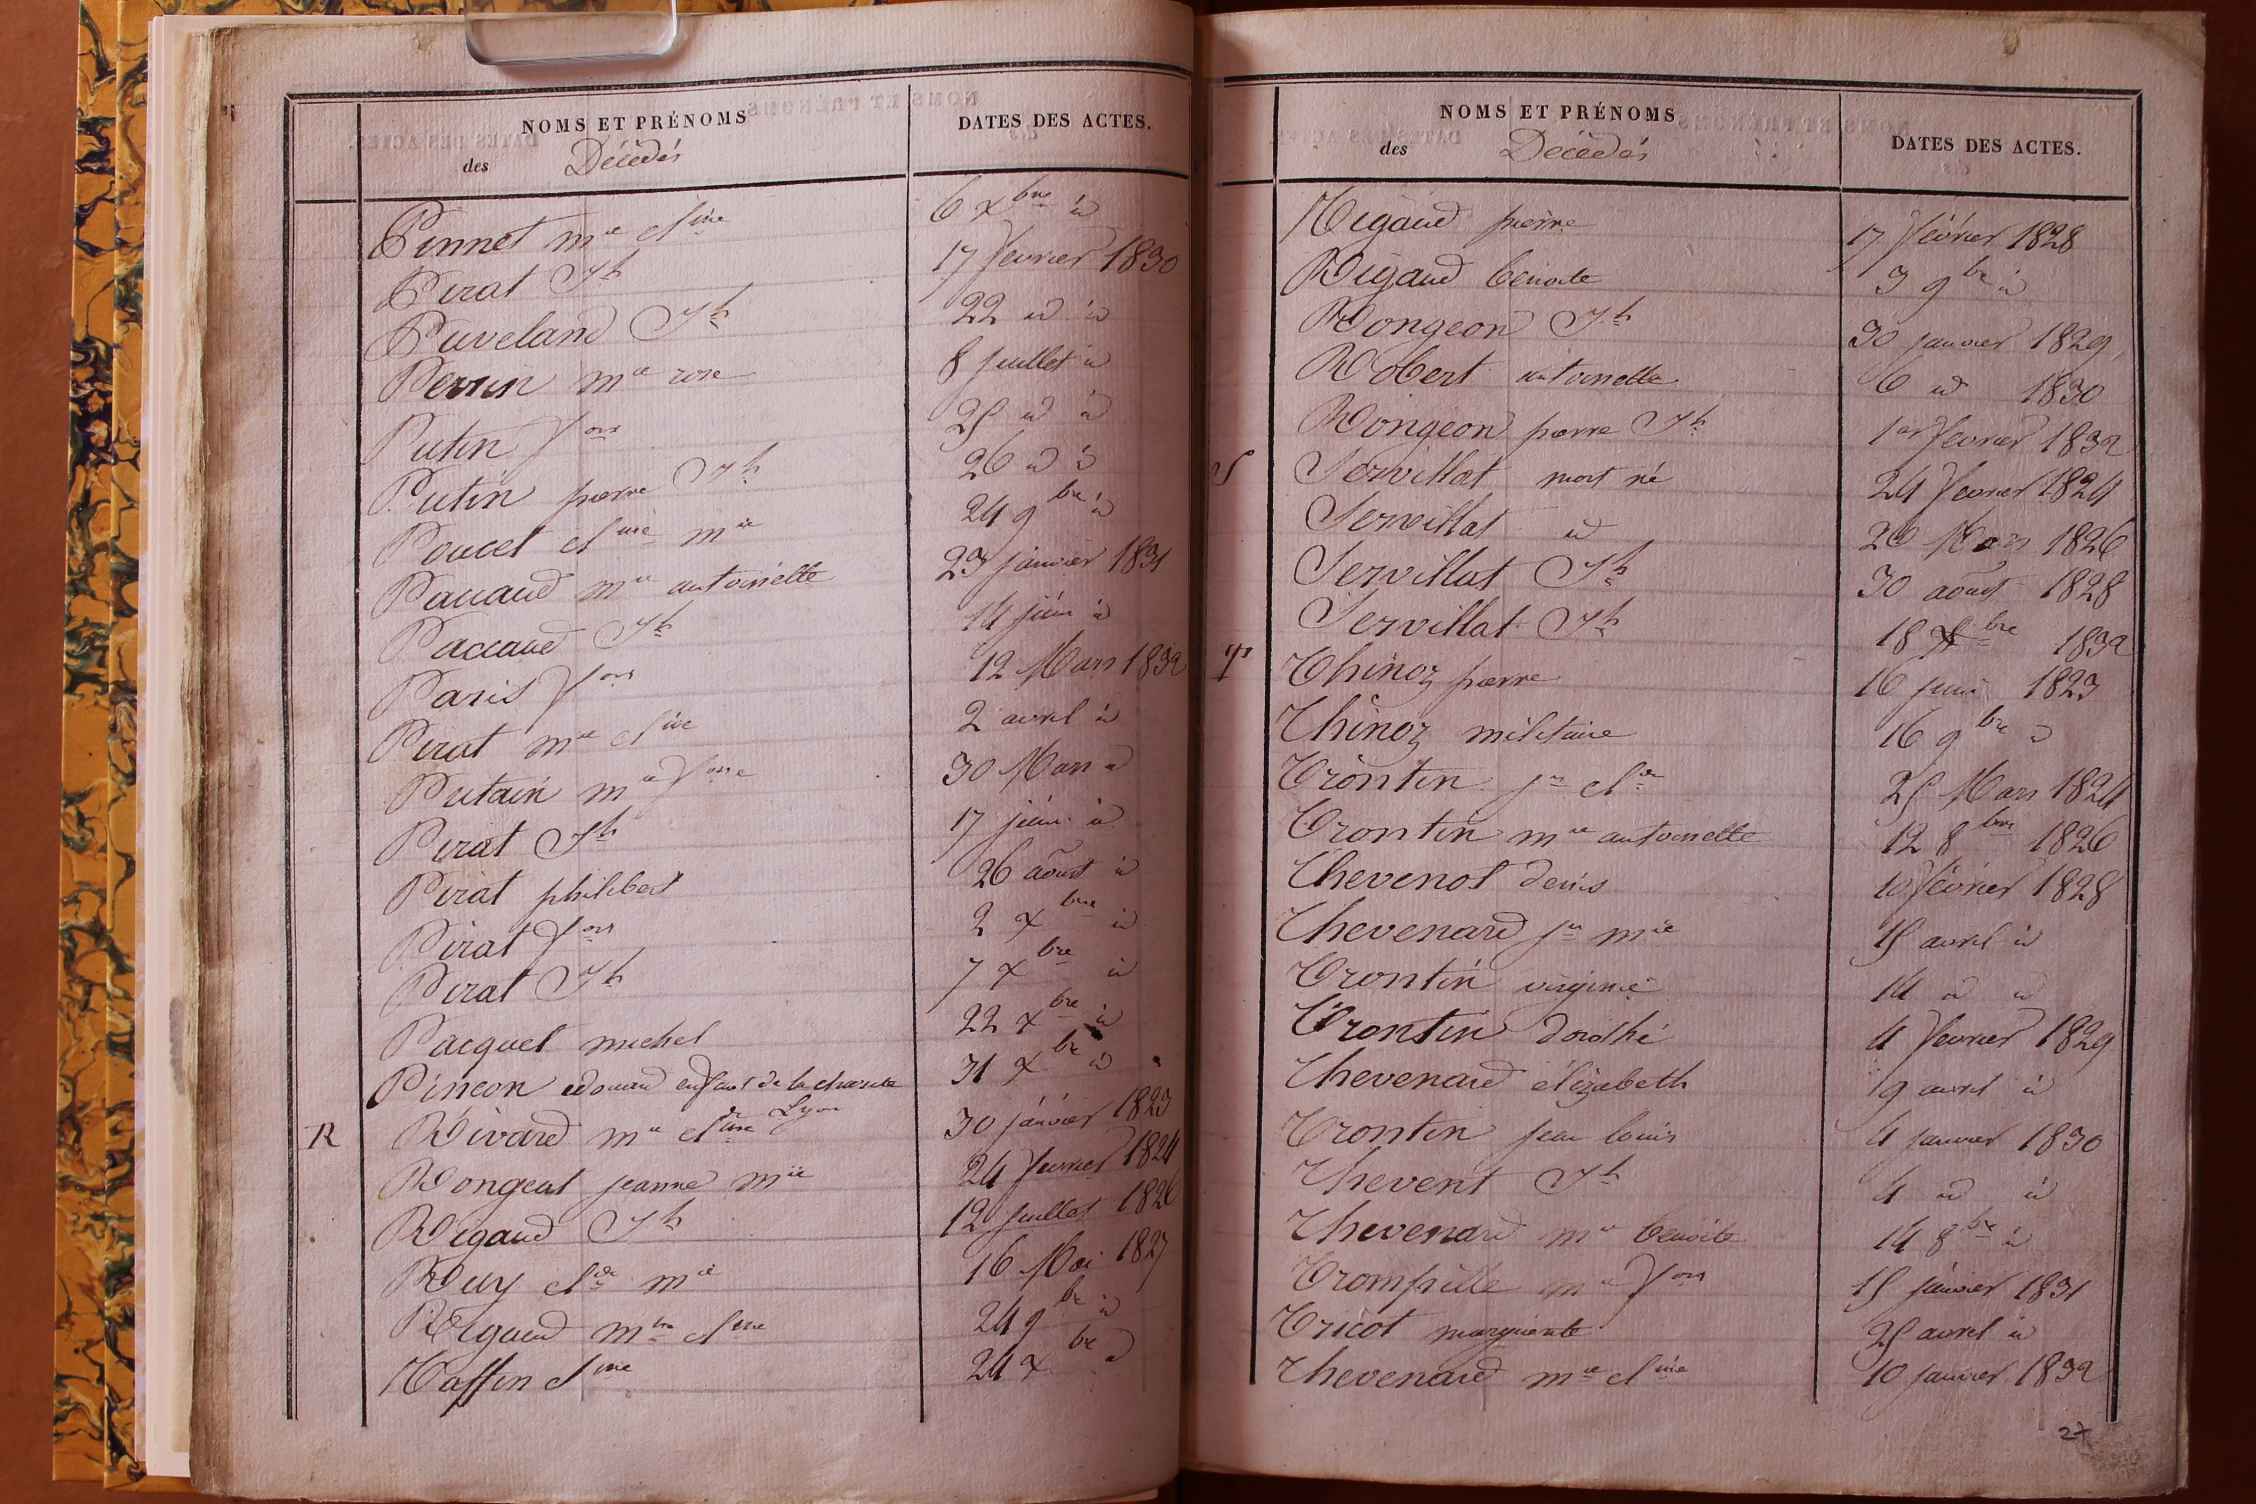 NOMS ET PRÉNOMS
des Décédés
DATES DES ACTES.
Pinnet mie cline 6 xbre id
Pirat Jh 17 fevrier 1830
Puveland Jh 22 id id
Perrin mie rose 8 juillet id
Putin fois 25 id id
Putin pierre Jh 26 id id
Poucet cline mie 24 9bre id
Paccaud mie antoinette 23 janvier 1831
Paccaud Jh 14 juin id
Paris fois 12 Mars 1832
Pirat mie cline 2 avril id
Putain mie foise 30 Mars id
Pirat Jh 17 juin id
Pirat philibert 26 aoust id
Pirat fois 2 xbre id
Pirat Jh 7 xbre id
Pacquet michel 22 xbre id
Pincon edouard enfant de la charité Lyon 31 xbre id
R Rivard mie cdine 30 janvier 1823
Rongeat jeanne mie 24 fevrier 1824
Rigaud Jh 12 juillet 1826
Ruy clde mie 16 Mai 1827
Rigaud mie cline 24 9bre id
Raffin cline 24 xbre id
NOMS ET PRÉNOMS
des Décédés
DATES DES ACTES.
Rigaud pierre 17 février 1828
Rigaud benoite 3 9bre id
Rongeon Jh 30 janvier 1829
Robert antoinette 6 id 1830
Rongeon pierre Jh 1er fevrier 1832
S Servillat mort né 24 fevrier 1824
Servillat id 26 Mars 1826
Servillat Jh 30 aoust 1828
Servillat Jh 18 xbre 1832
T Thinoz pierre 16 juin 1823
Thinoz militaire 16 9bre id
Trontin jn clde 25 Mars 1824
Trontin mie antoinette 12 8bre 1826
Thevenot denis 10 février 1828
Thevenard jn mie 15 avril id
Trontin virginie 14 id id
Trontin dorothé 4 fevrier 1829
Thevenard élizabeth 9 avril id
Trontin jean louis 4 janvier 1830
Thevent Jh 4 id id
Thevenard mie benoite 14 8bre id
Trompille mie fois 15 janvier 1831
Tricot marguerite 25 avril id
Thevenard mie cline 10 janvier 1832
27